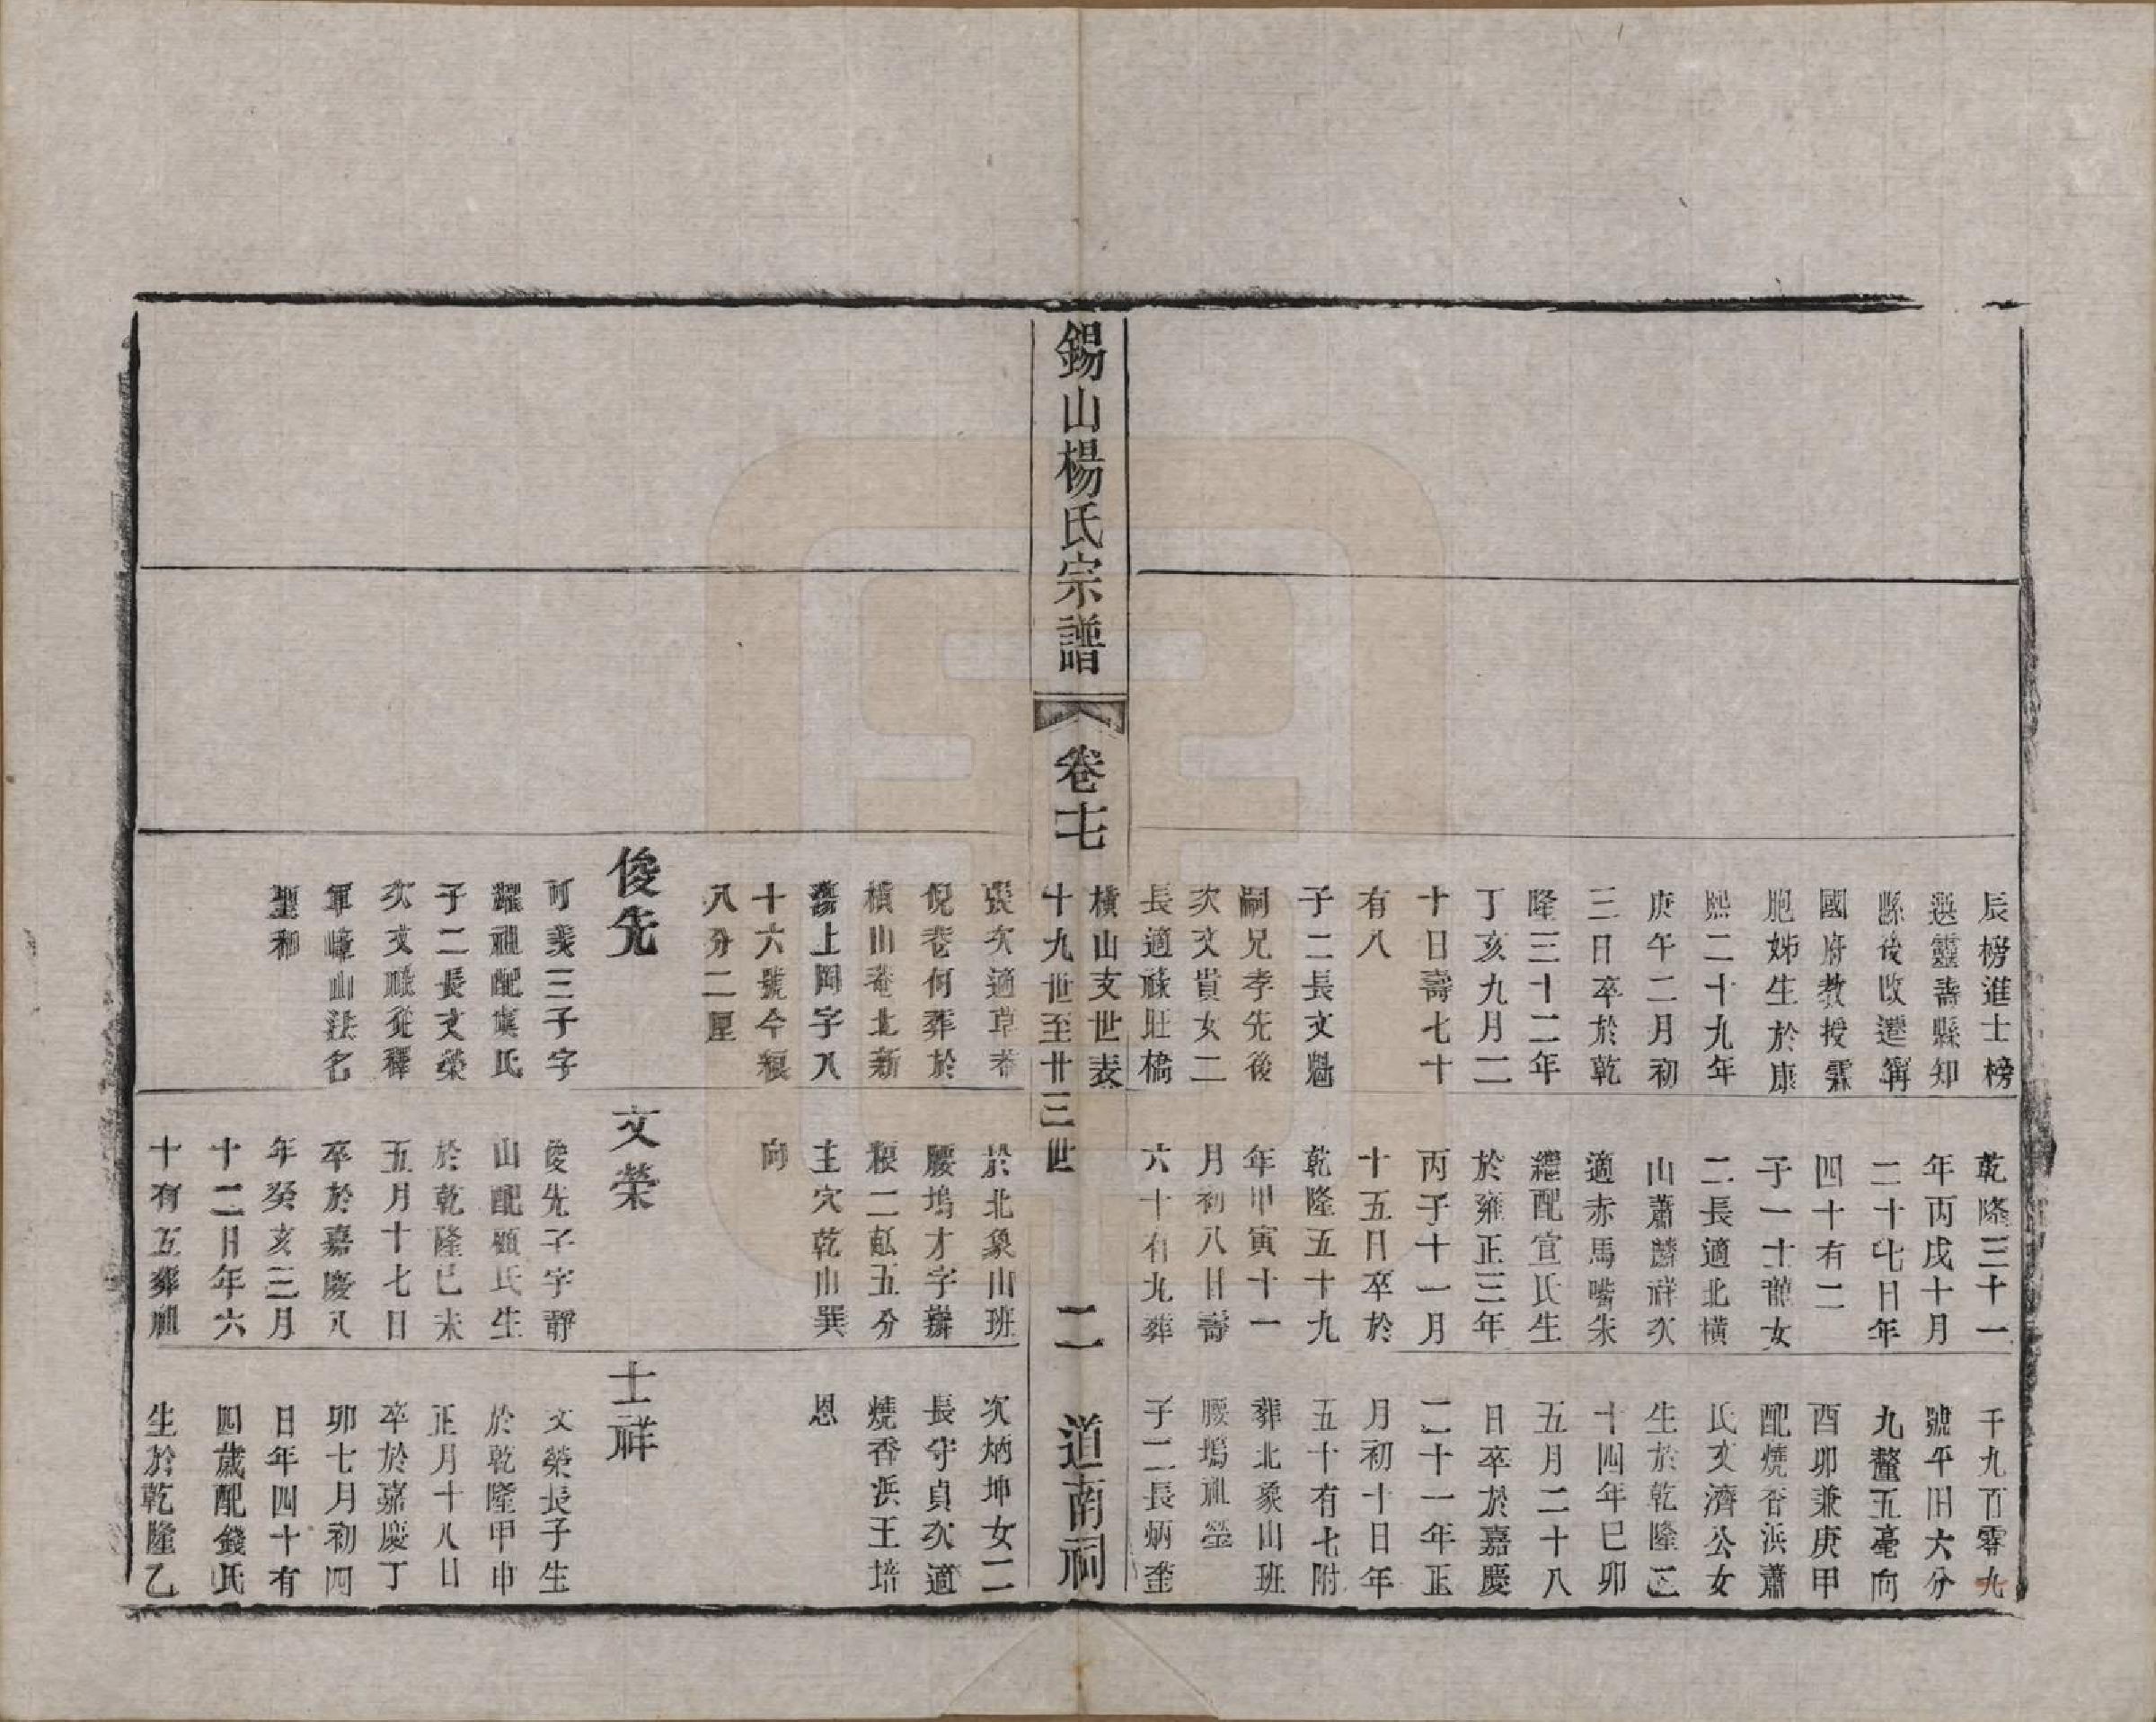 辰榜進士榜
選靈壽縣知
縣後改遷甯
國府教授霖
胞姊生於康
熙二十九年
庚午二月初
三日卒於乾
隆三十二年
丁亥九月二
十日壽七十
有八
子二長文魁
嗣兄孝先後
次文貴女二
長適蘇莊橋
乾隆三十一
年丙戌十月
二十七日年
四十有二
子一士龍女
二長適北橫
山蕭麟祥次
適赤馬嘴朱
繼配宣氏生
於雍正三年
丙子十一月
十五日卒於
乾隆五十九
年甲寅十一
月初八日壽
六十有九葬
千九百零九
號平田六分
九釐五毫向
酉卯兼庚甲
配燒香浜蕭
氏文濟公女
生於乾隆二
十四年巳卯
五月二十八
日卒於嘉慶
二十一年正
月初十日年
五十有七附
葬北象山班
腰塢祖塋
子二長炳奎
錫山楊氏宗譜
卷十七
橫山支世表
十九世至廿三世
二
道南祠
張次適草菴
倪巷何葬於
橫山菴北新
蕩上岡字八
十六號今糧
八分二厘
俊先
可義三子字
耀祖配虞氏
子二長文榮
次文 從釋
軍嶂山法名
聖和
於北象山班
腰塢才字辦
糧二畝五分
主穴乾山巽
向
文榮
俊先子字靜
山配顧氏生
於乾隆巳未
五月十七日
卒於嘉慶八
年癸亥三月
十二日年六
十有五葬祖
次炳坤女二
長守貞次適
燒香浜王培
恩
士祥
文榮長子生
於乾隆甲申
正月十八日
卒於嘉慶丁
卯七月初四
日年四十有
四歲配錢氏
生於乾隆乙